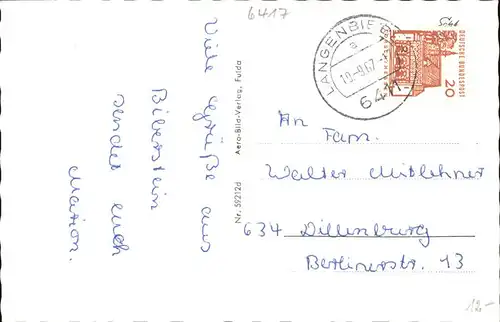 6417
Viele Grüße aus
Biberstein
sendet euch
Marion.
Aero-Bild-Verlag, Fulda
Nr. 59212d
LANGENBIEB
a
10.-9.67.-
641
DEUTSCHE BUNDESPOST
20
An
Fam.
Walter Mitlehner
634 Dillenburg
Berlinerstr. 13
12,-